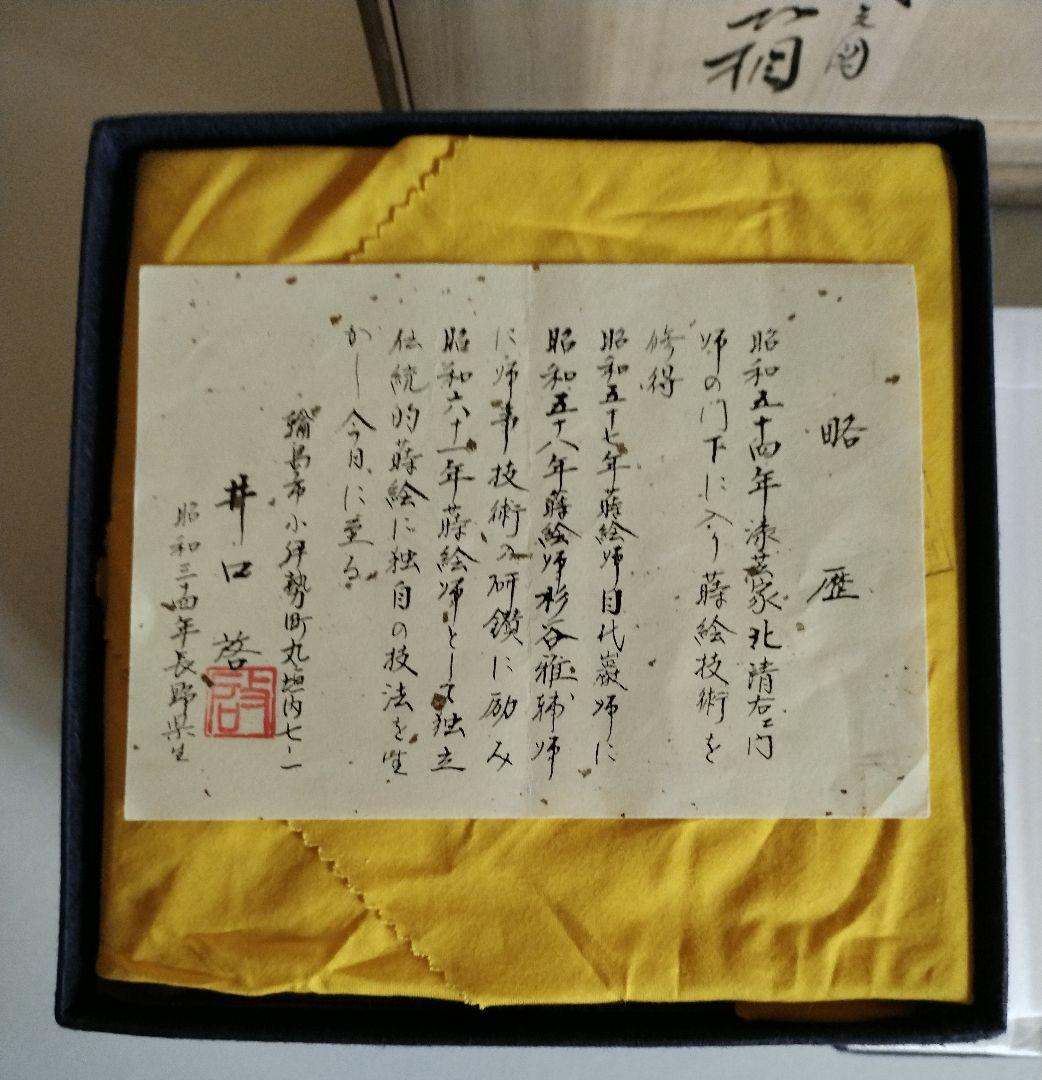 箱
略歴
昭和五十四年漆芸家北濱右ヱ門
師の門下に入り蒔絵技術を
修得
昭和五十七年蒔絵師目代巌師に
昭和五十八年蒔絵師杉谷雅輔師
に師事技術の研鑽に励み
昭和六十一年蒔絵師として独立
伝統的蒔絵に独自の技法を生
かし今日に至る
輪島市小伊勢町丸垣内七ー一
井口啓
啓
昭和三十四年長野県生